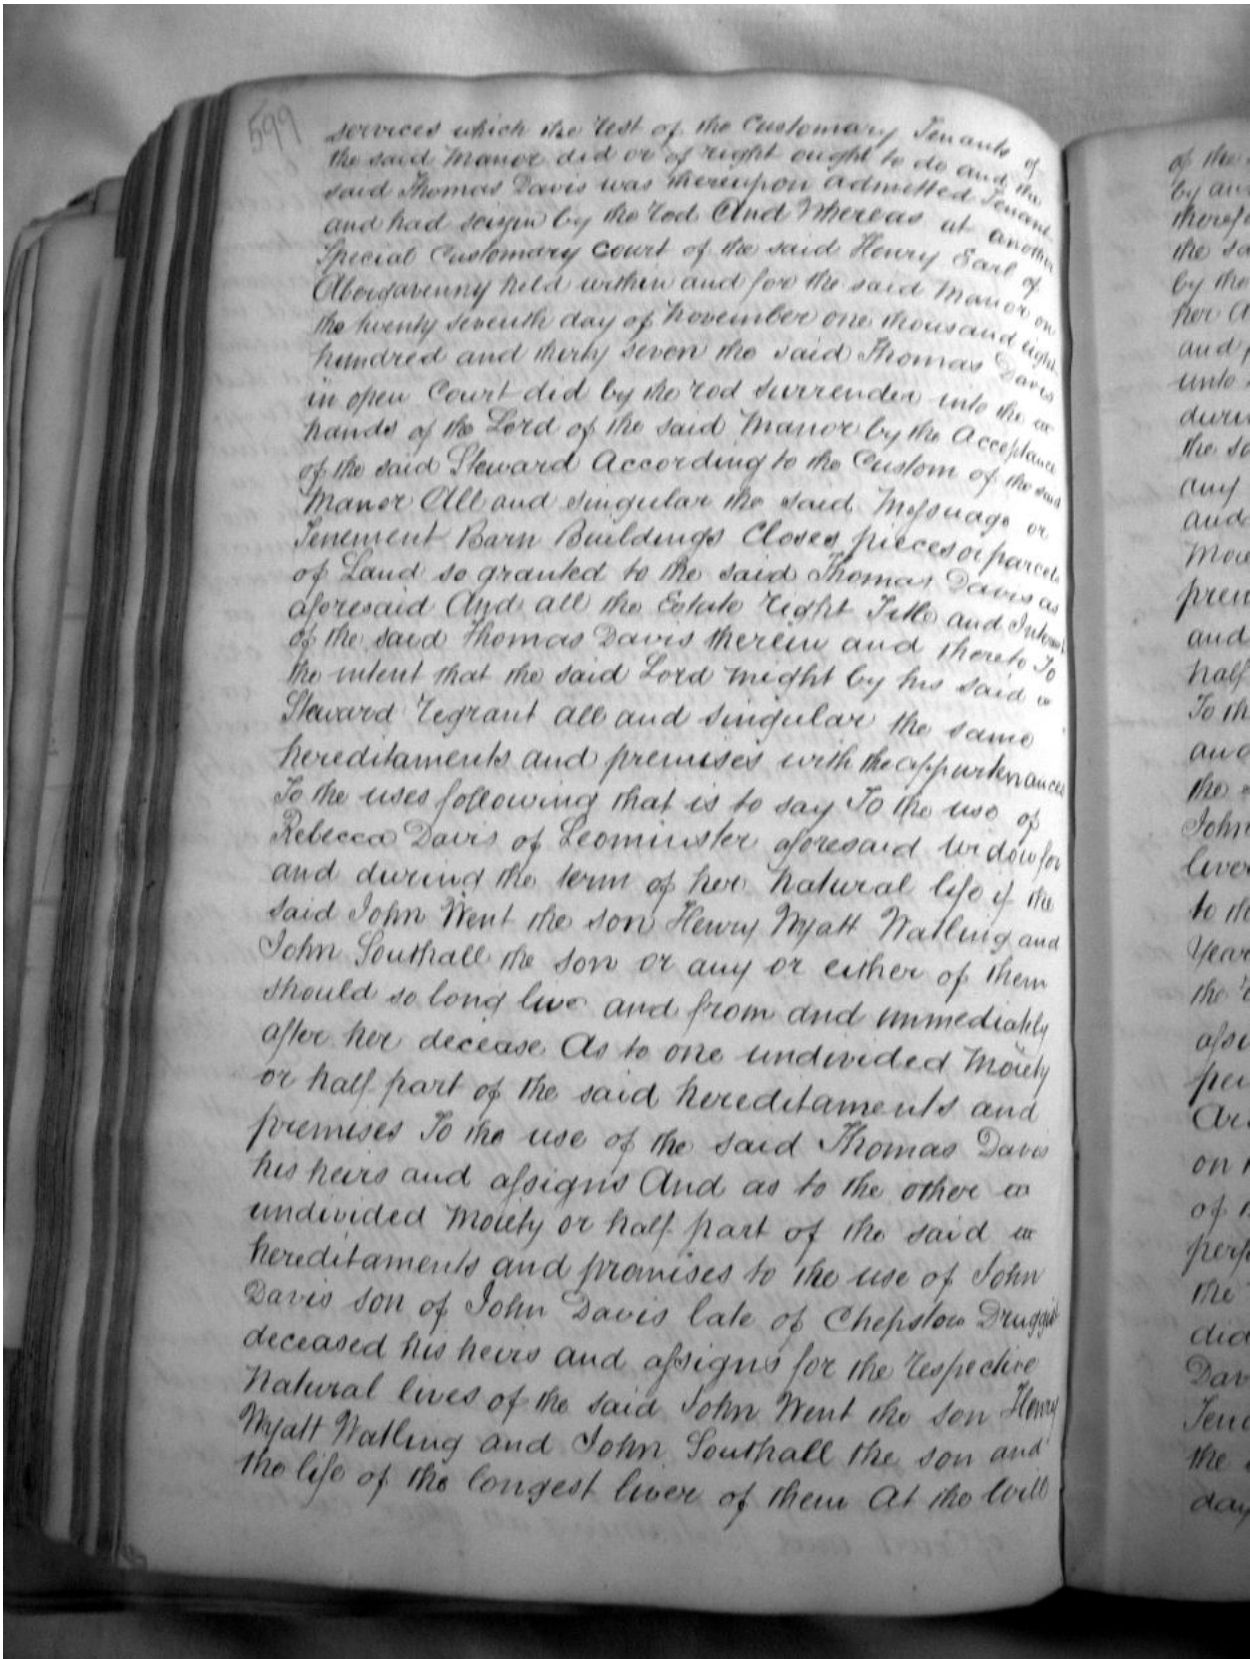 599
services which the rest of the Customary Tenants of
the said Manor did or of right ought to do and the
said Thomas Davis was thereupon admitted Tenant
and had seizin by the rod And Whereas at another
Special Customary Court of the said Henry Earl of
Abergavenny held within and for the said Manor on
the twenty seventh day of November one thousand eight
hundred and thirty seven the said Thomas Davis
in open Court did by the rod surrender into the
hands of the Lord of the said Manor by the Acceptance
of the said Steward According to the Custom of the said
Manor All and singular the said Messuage or
Tenement Barn Buildings Closes pieces or parcels
of Land so granted to the said Thomas Davis as
aforesaid And all the Estate right Title and Interest
of the said Thomas Davis therein and thereto To
the intent that the said Lord might by his said
Steward regrant all and singular the same
hereditaments and premises with the appurtenances
To the uses following that is to say To the use of
Rebecca Davis of Leominster aforesaid widow for
and during the term of her natural life if the
said John Went the son Henry Wyatt Watling and
John Southall the son or any or either of them
should so long live and from and immediately
after her decease As to one undivided moiety
or half part of the said hereditaments and
premises To the use of the said Thomas Davis
his heirs and assigns And as to the other
undivided moiety or half part of the said
hereditaments and premises to the use of John
Davis son of John Davis late of Chepstow Druggist
deceased his heirs and assigns for the respective
natural lives of the said John Went the son Henry
Wyatt Watling and John Southall the son and
the life of the longest liver of them At the Will
of the
by
the
by the
her
and
unto
the
any
and
and
half
To the
the
John
to th
Year
the
on
of
the
did
Dav
the
day